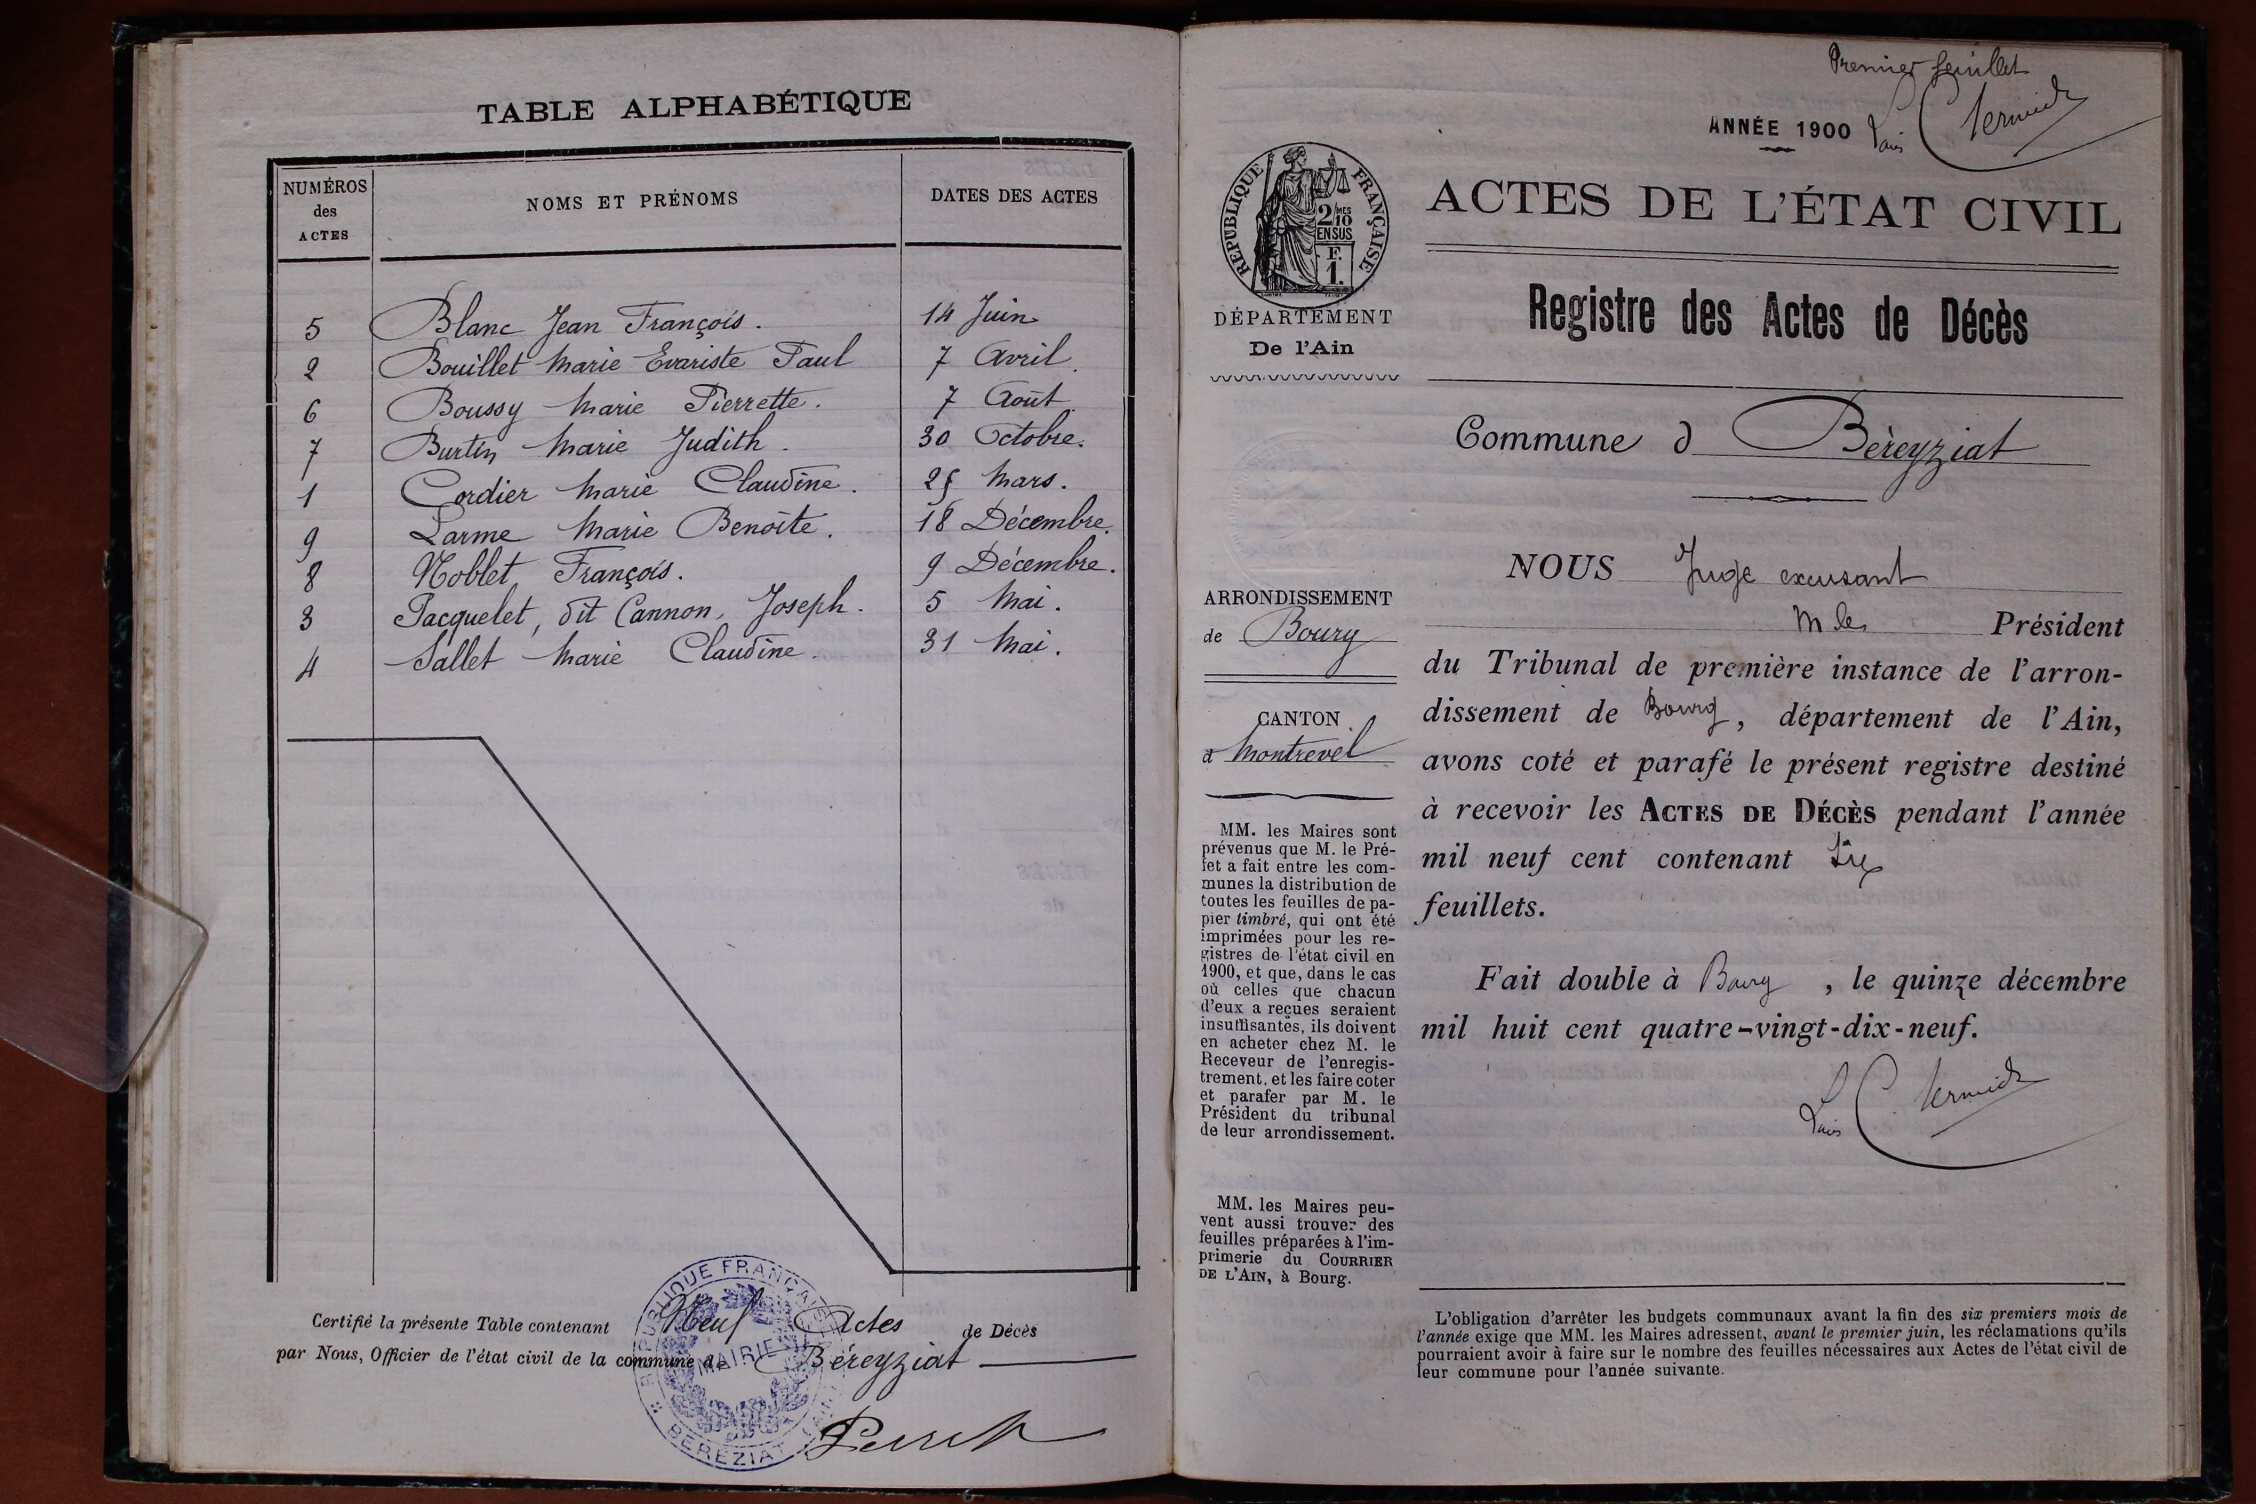 TABLE ALPHABÉTIQUE
NUMÉROS des ACTES
NOMS ET PRÉNOMS
DATES DES ACTES
5 Blanc Jean François. 14 Juin
2 Bouillet Marie Evariste Paul 7 Avril.
6 Boussy Marie Pierrette. 7 Août
7 Burtin Marie Judith. 30 Octobre.
1 Cordier Marie Claudine. Mars.
9 Larme Marie Benoîte. 18 Décembre.
8 Noblet François. 9 Décembre.
3 Pacquelet, dit Cannon, Joseph. 5 Mai.
4 Sallet Marie Claudine. 31 Mai.
Certifié la présente Table contenant Neuf Actes de Décès
par Nous, Officier de l'état civil de la commune de Béreyziat
RÉPUBLIQUE FRANÇAISE
MAIRIE
BEREZIAT
Premier feuillet
ANNÉE 1900
RÉPUBLIQUE FRANÇAISE
2/10 MES
EN SUS
F.
1.
DÉPARTEMENT
De l'Ain
ARRONDISSEMENT
de Bourg
CANTON
d Montrevel
MM. les Maires sont
prévenus que M. le Pré-
fet a fait entre les com-
munes la distribution de
toutes les feuilles de pa-
pier timbré, qui ont été
imprimées pour les re-
gistres de l'état civil en
1900, et que, dans le cas
où celles que chacun
d'eux a reçues seraient
insuffisantes, ils doivent
en acheter chez M. le
Receveur de l'enregis-
trement, et les faire coter
et parafer par M. le
Président du tribunal
de leur arrondissement.
MM. les Maires peu-
vent aussi trouver des
feuilles préparées à l'im-
primerie du COURRIER
DE L'AIN, à Bourg.
ACTES DE L'ÉTAT CIVIL
Registre des Actes de Décès
Commune d Béreyziat
NOUS Juge excusant
M le Président
du Tribunal de première instance de l'arron-
dissement de Bourg, département de l'Ain,
avons coté et parafé le présent registre destiné
à recevoir les ACTES DE DÉCÈS pendant l'année
mil neuf cent contenant
feuillets.
Fait double à Bourg, le quinze décembre
mil huit cent quatre-vingt-dix-neuf.
L'obligation d'arrêter les budgets communaux avant la fin des six premiers mois de
l'année exige que MM. les Maires adressent, avant le premier juin, les réclamations qu'ils
pourraient avoir à faire sur le nombre des feuilles nécessaires aux Actes de l'état civil de
leur commune pour l'année suivante.